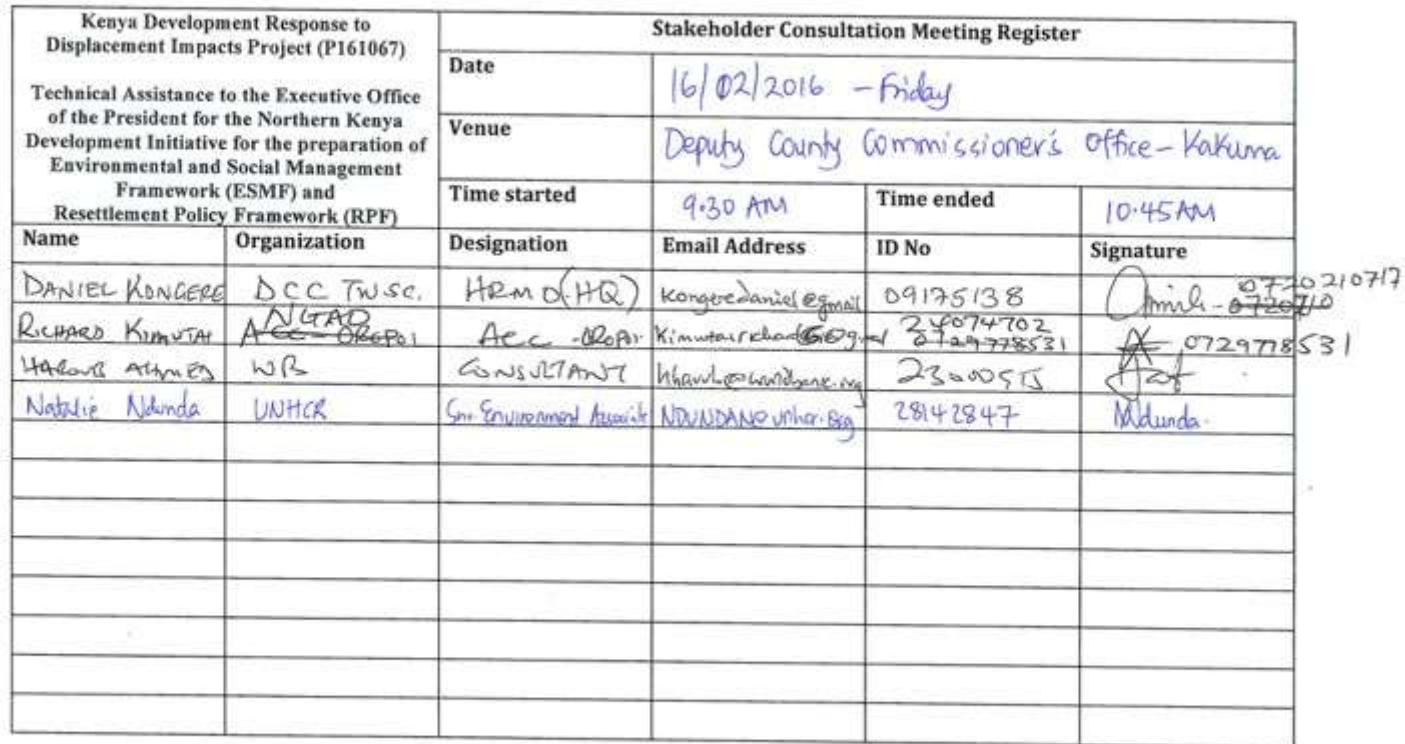 Kenya Development Response to
Displacement Impacts Project (P161067)
Technical Assistance to the Executive Office
of the President for the Northern Kenya
Development Initiative for the preparation of
Environmental and Social Management
Framework (ESMF) and
Resettlement Policy Framework (RPF)
Stakeholder Consultation Meeting Register
Date 16/02/2016 - Friday
Venue Deputy County Commissioner's Office - Kakuma
Time started 9.30 AM Time ended 10.45AM
Name Organization Designation Email Address ID No Signature
DANIEL KONGERE DCC TWSC. HRMO (HQ) kongeredaniel@gmail 09175138 0720210717
RICHARD KIMUTAI NGAO ACC-OROPOI 24074702 0729778531 0729778531
AHMED WB CONSULTANT
Natalie Ndunda UNHCR Snr Environment Associate NDUNDAN@unhcr.org 28142847 Ndunda.